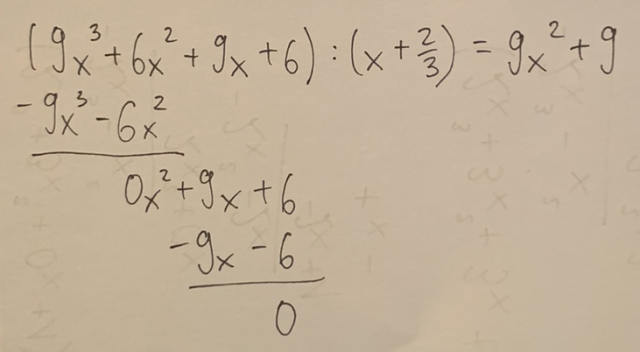 (9x³+6x²+9x+6):(x+2/3)=9x²+9
-9x³-6x²
0x²+9x+6
-9x-6
0